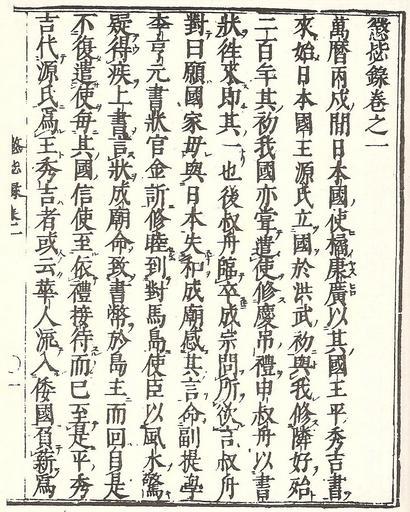 懲毖錄卷之一
萬曆丙戌間日本國使橘康廣以其國王平秀吉書
來始日本國王源氏立國於洪武初與我修隣好殆
二百年其初我國亦嘗遣使修慶吊禮申叔舟以書
狀徃來即其一也後叔舟臨卒成宗問所欲言叔舟
對曰願國家毋與日本失和成廟感其言命副提學
李亨元書狀官金訢修睦到對馬島使臣以風水驚
疑得疾上書言狀成廟命致書幣於島主而回自是
不復遣使每其國信使至依禮接待而已至是平秀
吉代源氏爲王秀吉者或云華人流入倭國負薪爲